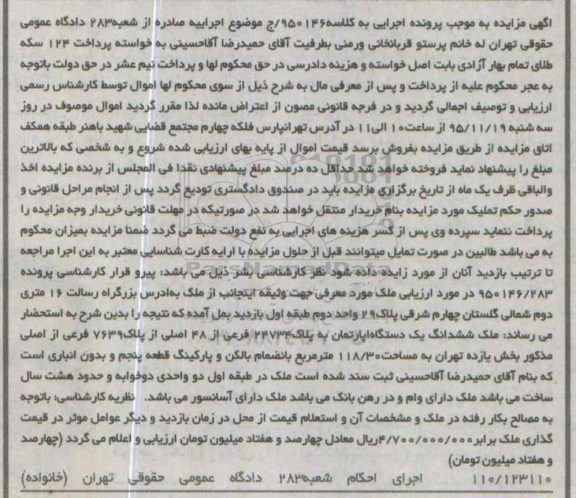 اگهی مزایده به موجب پرونده اجرایی به کلاسه۹۵۰۱۴۶/ج موضوع اجراییه صادره از شعبه۲۸۳ دادگاه عمومی
حقوقی تهران له خانم پرستو قربانخانی ورمنی بطرفیت آقای حمیدرضا آقاحسینی به خواسته پرداخت ۱۲۴ سکه
طلای تمام بهار آزادی بابت اصل خواسته و هزینه دادرسی در حق محکوم لها و پرداخت نیم عشر در حق دولت باتوجه
به عجر محکوم علیه از پرداخت و پس از معرفی مال به شرح ذیل از سوی محکوم لها اموال توسط کارشناس رسمی
ارزیابی و توصیف اجمالی گردید و در فرجه قانونی مصون از اعتراض مانده لذا مقرر گردید اموال موصوف در روز
سه شنبه ۹۵/۱۱/۱۹ از ساعت۱۰ الی۱۱ در آدرس تهرانپارس فلکه چهارم مجتمع قضایی شهید باهنر طبقه همکف
اتاق مزایده از طریق مزایده بفروش برسد قیمت اموال از پایه بهای ارزیابی شده شروع و به شخصی که بالاترین
مبلغ را پیشنهاد نماید فروخته خواهد شد حداقل ده درصد مبلغ پیشنهادی نقدا فی المجلس از برنده مزایده اخذ
والباقی ظرف یک ماه از تاریخ برگزاری مزایده باید در صندوق دادگستری تودیع گردد پس از انجام مراحل قانونی و
صدور حکم تملیک مورد مزایده بنام خریدار منتقل خواهد شد در صورتیکه در مهلت قانونی خریدار وجه مزایده را
پرداخت ننماید سپرده وی پس از کسر هزینه های اجرایی به نفع دولت ضبط می گردد ضمنا مزایده بمیزان محکوم
به می باشد طالبین در صورت تمایل میتوانند قبل از حلول مزایده با ارایه کارت شناسایی معتبر به این اجرا مراجعه
تا ترتیب بازدید آنان از مورد زایده داده شود نظر کارشناسی بشر ذیل می باشد: پیرو قرار کارشناسی پرونده
۹۵۰۱۴۶/۲۸۳ در مورد ارزیابی ملک مورد معرفی جهت وثیقه اینجانب از ملک به‌ادرس بزرگراه رسالت ۱۶ متری
دوم شمالی گلستان چهارم شرقی پلاک۲۹ واحد دوم طبقه اول بازدید بمل آمده که نتیجه را بدین شرح به استحضار
می رساند: ملک ششدانگ یک دستگاه‌اپارتمان به پلاک۲۴۷۳۴ فرعی از ۴۸ اصلی از پلاک۷۶۳۹ فرعی از اصلی
مذکور بخش یازده تهران به مساحت۱۱۸/۳۰ مترمربع بانضمام بالکن و پارکینگ قطعه پنجم و بدون انباری است
که بنام آقای حمیدرضا آقاحسینی ثبت سند شده است ملک در طبقه اول دو واحدی دوخوابه و حدود هشت سال
ساخت می باشد ملک دارای وام و در رهن بانک می باشد ملک دارای آسانسور می باشد. نظریه کارشناسی: باتوجه
به مصالح بکار رفته در ملک و مشخصات آن و استعلام قیمت از محل در زمان بازدید و دیگر عوامل موثر در قیمت
گذاری ملک برابر۴/۷۰۰/۰۰۰/۰۰۰ریال معادل چهارصد و هفتاد میلیون تومان ارزیابی و اعلام می گردد (چهارصد
و هفتاد میلیون تومان)
۱۱۰/۱۲۳۱۱۰ اجرای احکام شعبه۲۸۳ دادگاه عمومی حقوقی تهران (خانواده)